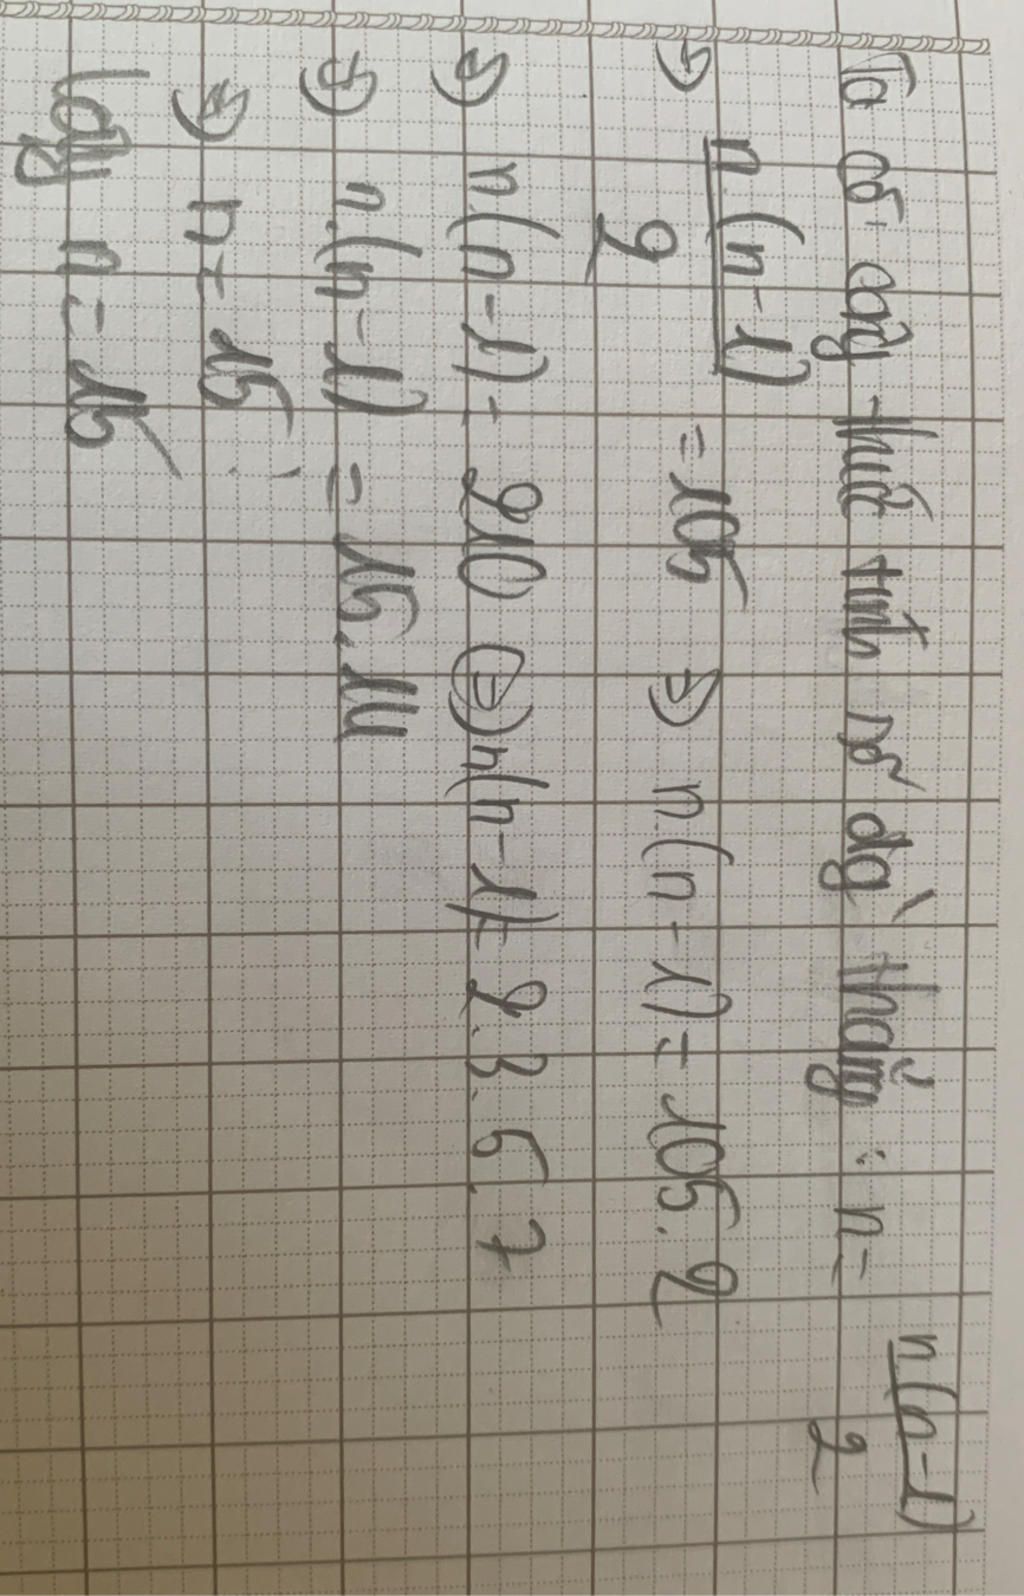 Ta có công thức tính số đg` thẳng : n = n.(n-1)/2
=> n.(n-1)/2 = 105 => n.(n-1) = 105.2
=> n.(n-1) = 210 => n(n-1) = 2.3.5.7
=> n.(n-1) = 15.14
=> n = 15
Vậy n = 15